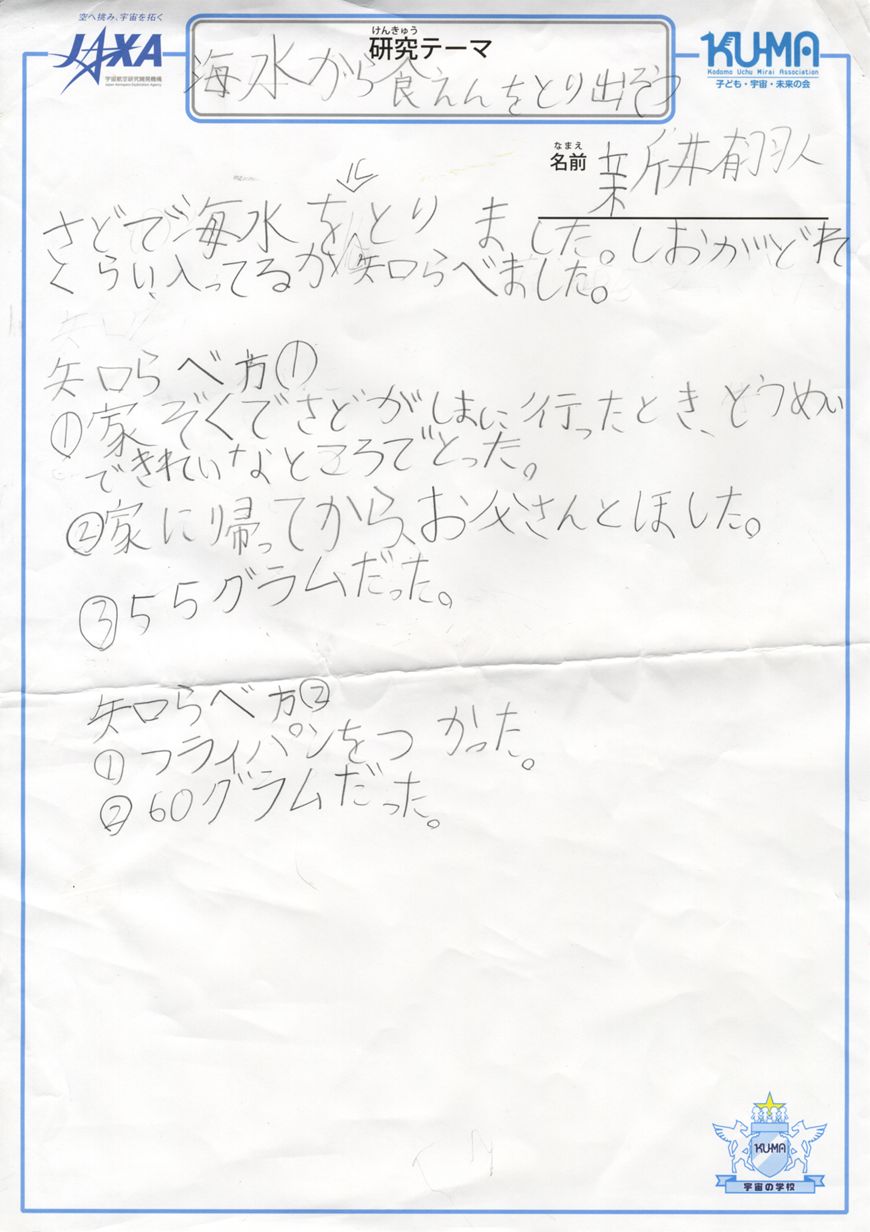 空へ挑み、宇宙を拓く
JAXA
宇宙航空研究開発機構
Japan Aerospace Exploration Agency
けんきゅう
研究テーマ
海水から食えんをとり出そう
KU-MA
Kodomo Uchu Mirai Association
子ども・宇宙・未来の会
なまえ
名前 新井有羽人
1L
さどで海水をとりました。しおがどれ
くらい入ってるか知らべました。
知らべ方①
①家ぞくでさどがしまに行ったとき、とうめい
できれいなところでとった。
②家に帰ってから、お父さんとほした。
③55グラムだった。
知らべ方②
①フライパンをつかった。
②60グラムだった。
KU-MA
宇宙の学校